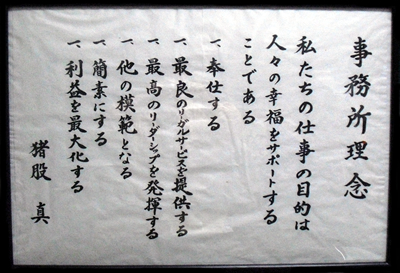 事務所理念
私たちの仕事の目的は
人々の幸福をサポートする
ことである
一、奉仕する
一、最良のリーガルサービスを提供する
一、最高のリーダーシップを発揮する
一、他の模範となる
一、簡素にする
一、利益を最大化する
猪股 真